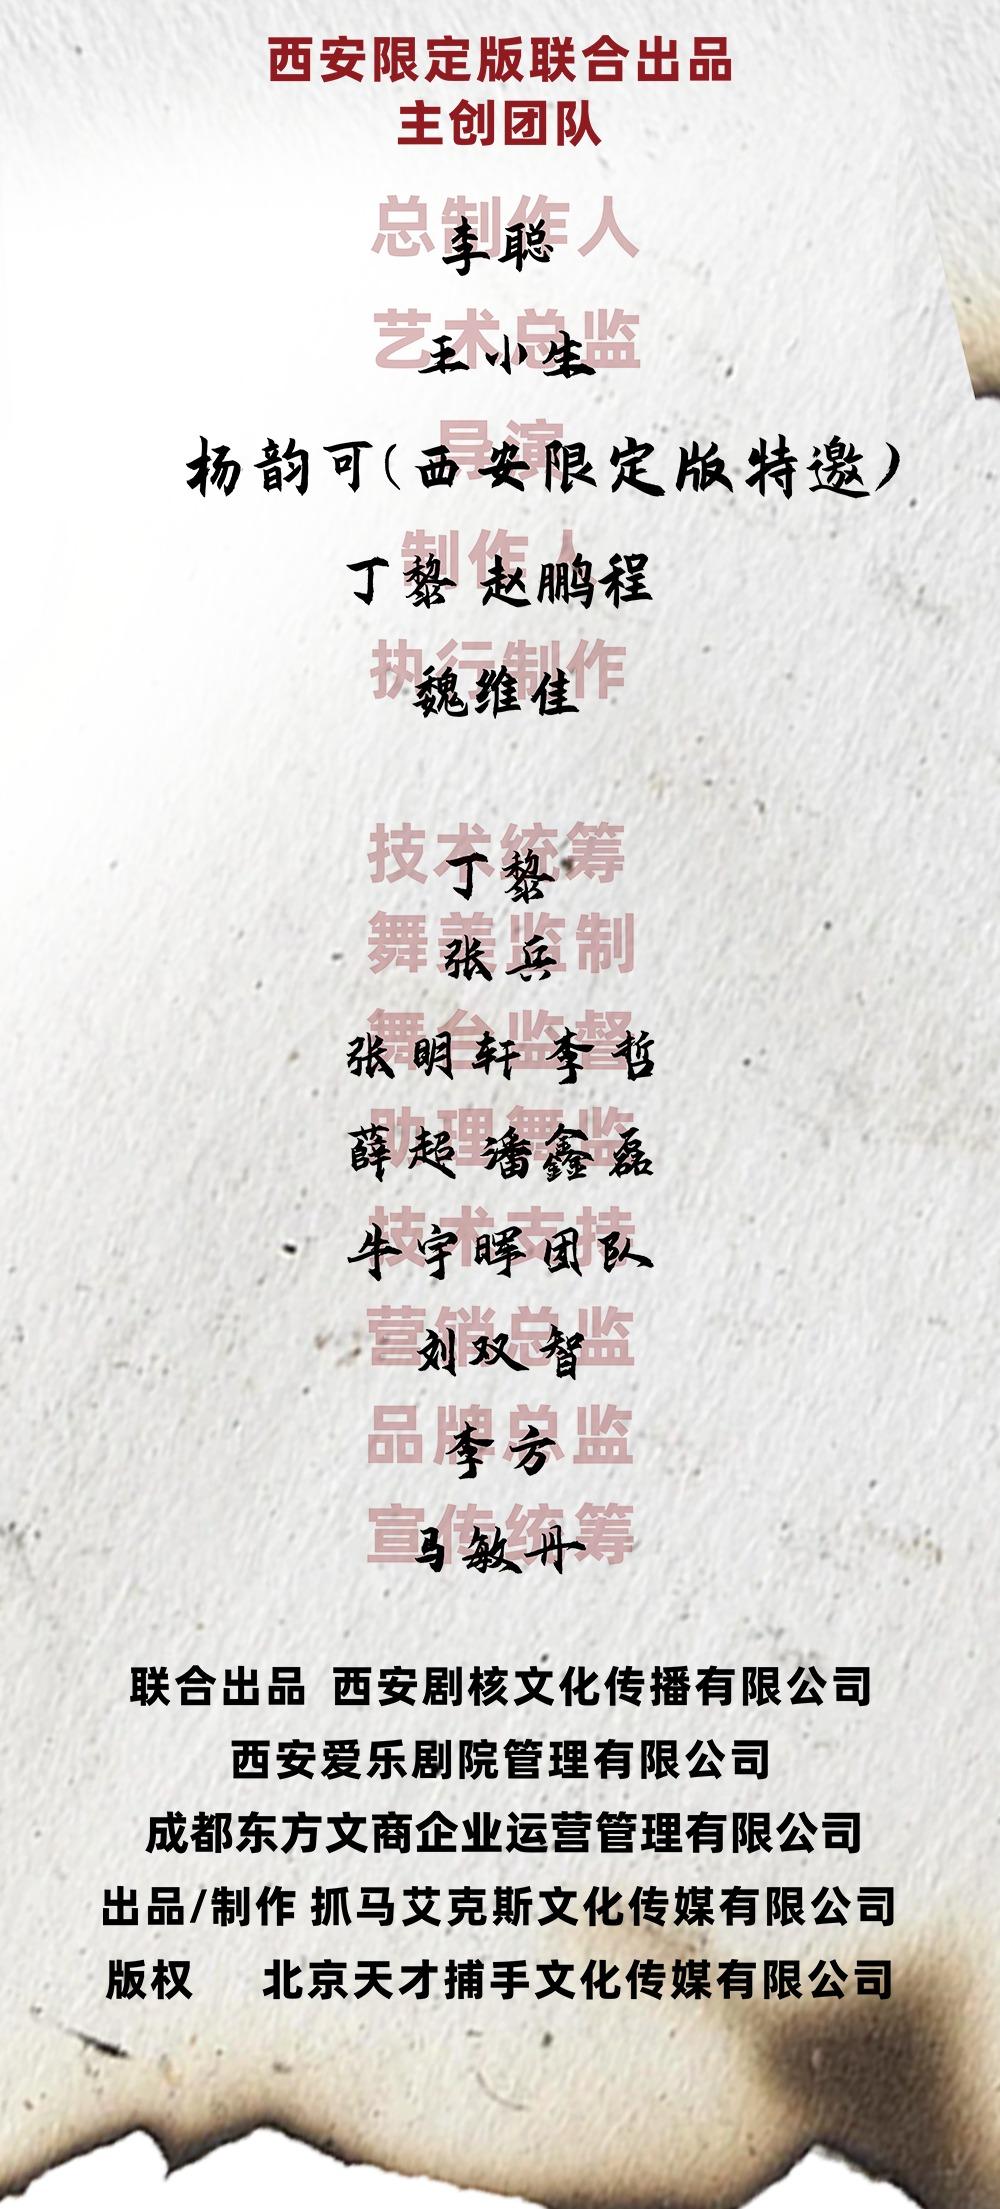 西安限定版联合出品
主创团队
总制作人
李聪
艺术总监
王小生
导演
杨韵可(西安限定版特邀)
制作人
丁黎 赵鹏程
执行制作
魏维佳
技术统筹
丁黎
舞美监制
张兵
舞台监督
张明轩 李哲
助理舞监
薛超 潘鑫磊
技术支持
牛宇晖团队
营销总监
刘双智
品牌总监
李方
宣传统筹
马敏丹
联合出品 西安剧核文化传播有限公司
西安爱乐剧院管理有限公司
成都东方文商企业运营管理有限公司
出品/制作 抓马艾克斯文化传媒有限公司
版权 北京天才捕手文化传媒有限公司